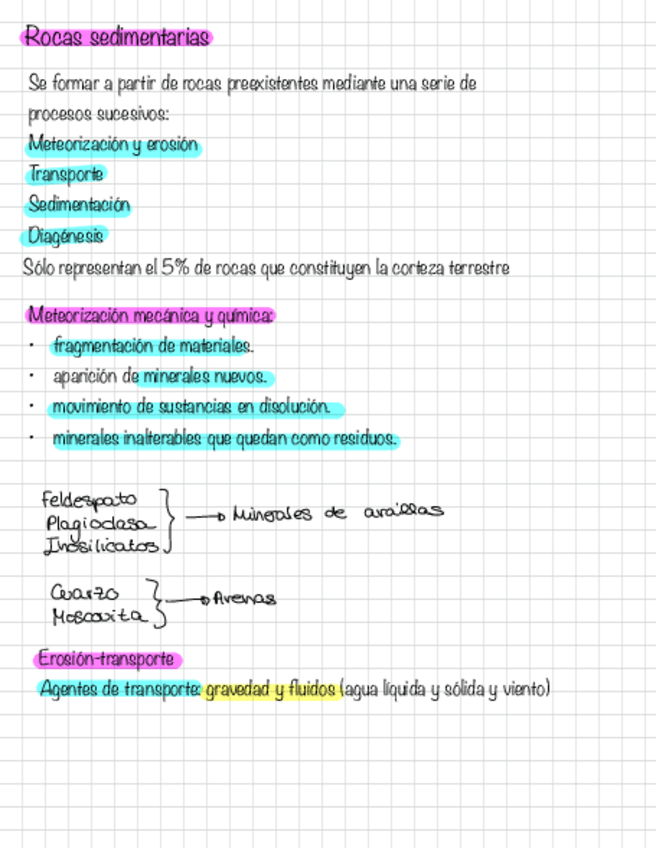 Rocas sedimentarias
Se formar a partir de rocas preexistentes mediante una serie de
procesos sucesivos:
Meteorización y erosión
Transporte
Sedimentación
Diagénesis
Sólo representan el 5% de rocas que constituyen la corteza terrestre
Meteorización mecánica y química:
• fragmentación de materiales.
• aparición de minerales nuevos.
• movimiento de sustancias en disolución.
• minerales inalterables que quedan como residuos.
Feldespato
Plagioclasa
Inosilicatos
Minerales de arcillas
Cuarzo
Moscovita
Arenas
Erosión-transporte
Agentes de transporte: gravedad y fluidos (agua líquida y sólida y viento)